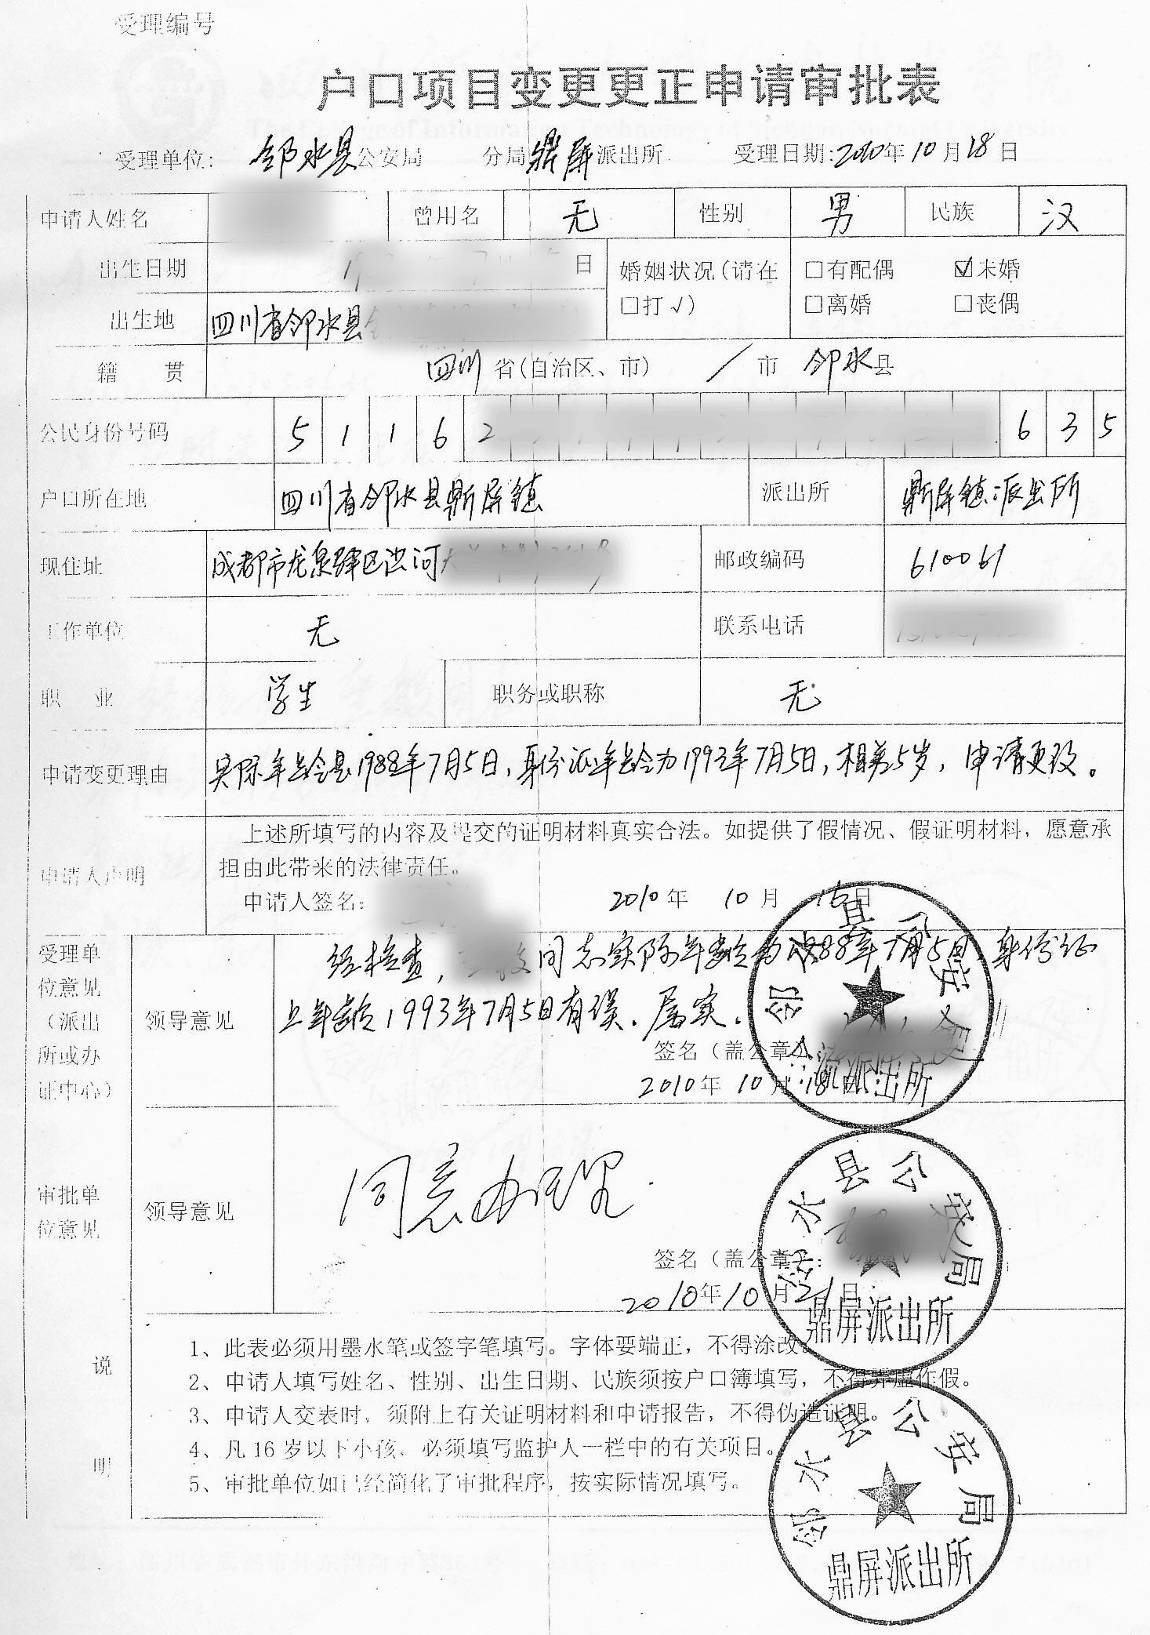 受理编号
户口项目变更更正申请审批表
受理单位: 邻水县公安局 分局鼎屏派出所 受理日期:2010年10月18日
申请人姓名 曾用名 无 性别 男 民族 汉
出生日期 日 婚姻状况(请在□打√) □有配偶 ☑未婚 □离婚 □丧偶
出生地 四川省邻水县
籍 贯 四川省(自治区、市) / 市 邻水县
公民身份号码 5 1 1 6 2 6 3 5
户口所在地 四川省邻水县鼎屏镇 派出所 鼎屏镇派出所
现住址 成都市龙泉驿区洪河 邮政编码 610061
工作单位 无 联系电话
职 业 学生 职务或职称 无
申请变更理由 实际年龄是1988年7月5日,身份证年龄为1993年7月5日,相差5岁,申请更改。
申请人声明 上述所填写的内容及提交的证明材料真实合法。如提供了假情况、假证明材料,愿意承
担由此带来的法律责任。
申请人签名: 2010年 10月 日
受理单位意见(派出所或办证中心) 领导意见
经检查, 同志实际年龄为1988年7月5日,身份证
上年龄1993年7月5日有误。属实。
签名(盖公章)
2010年10月18日
邻水县公安局
鼎屏派出所
审批单位意见 领导意见
同意办理.
签名(盖公章):
2010年10月21日
邻水县公安局
鼎屏派出所
说明
1、此表必须用墨水笔或签字笔填写。字体要端正,不得涂改。
2、申请人填写姓名、性别、出生日期、民族须按户口簿填写,不得弄虚作假。
3、申请人交表时,须附上有关证明材料和申请报告,不得伪造证明。
4、凡16岁以下小孩、必须填写监护人一栏中的有关项目。
5、审批单位如已经简化了审批程序,按实际情况填写。
邻水县公安局
鼎屏派出所